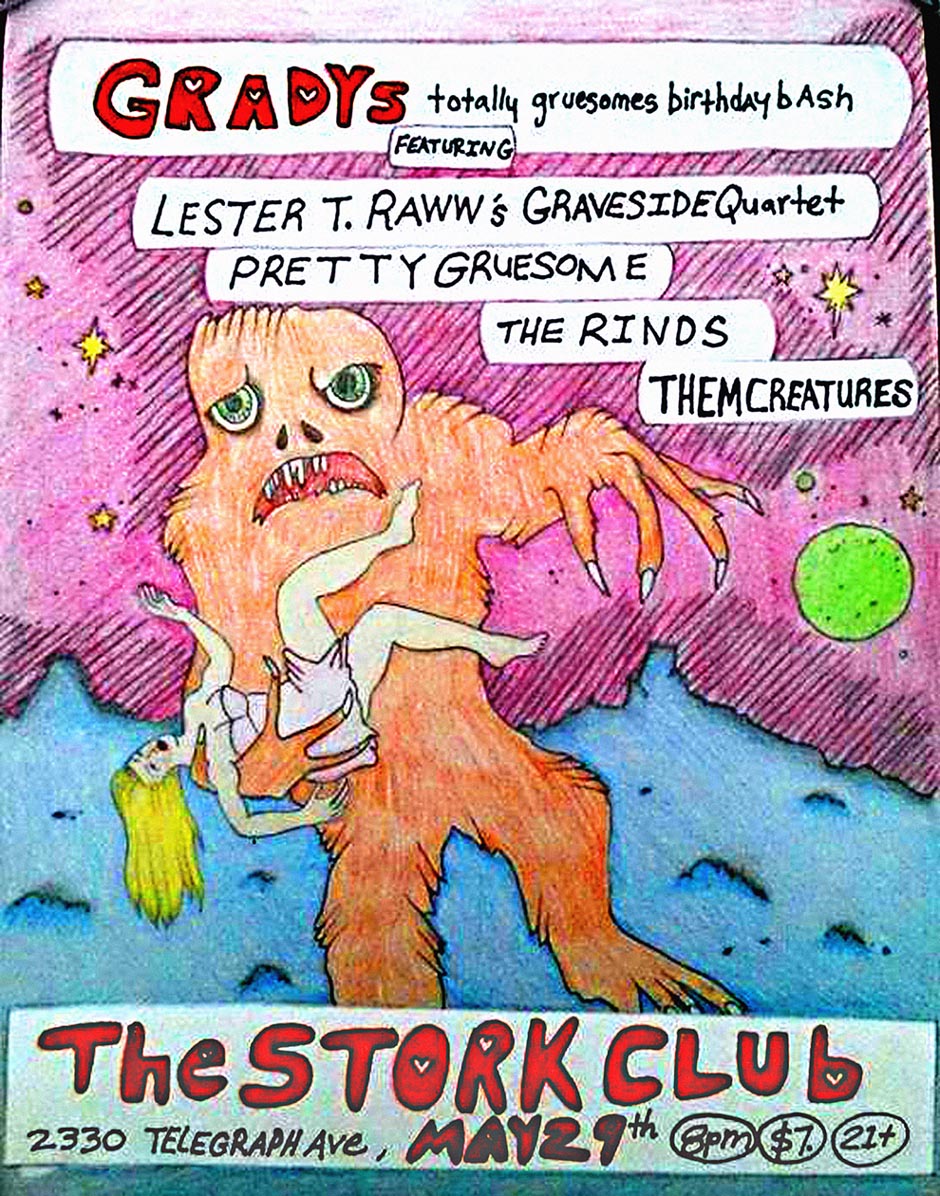 GRADYs totally gruesomes birthday bAsh
FEATURING
LESTER T. RAWW's GRAVESIDE Quartet
PRETTY GRUESOME
THE RINDS
THEM CREATURES
The STORK CLUb
2330 TELEGRAPH Ave, MAY 29th 8pm $7. 21+